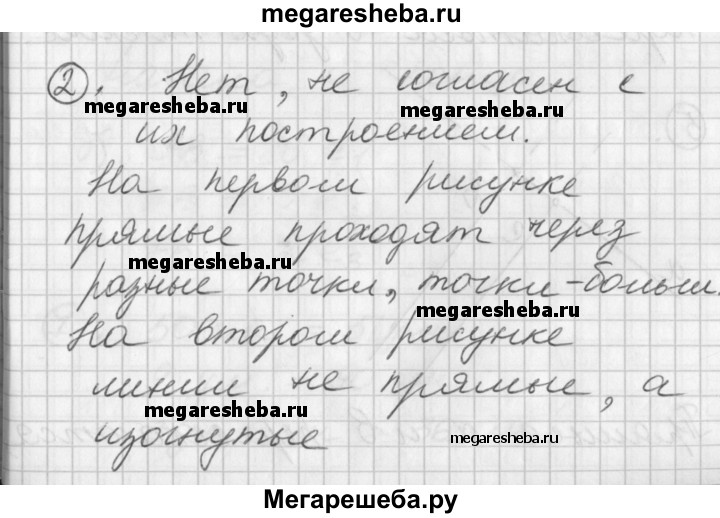 megaresheba.ru
2. Нет, не согласен с
megaresheba.ru
megaresheba.ru
их построением.
На первом рисунке
прямые проходят через
megaresheba.ru
разные точки, точки-больш.
megaresheba.ru
На втором рисунке
линии не прямые, а
megaresheba.ru
изогнутые
megaresheba.ru
Мегарешеба.ру